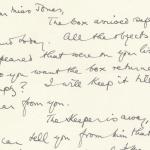 Dear Miss Jones,
The box arrived safe
today. All the objects
appeared that were on your li
you want the box returne
empty? I will keep it till
hear from you.
The Keeper is away,
can tell you from him that